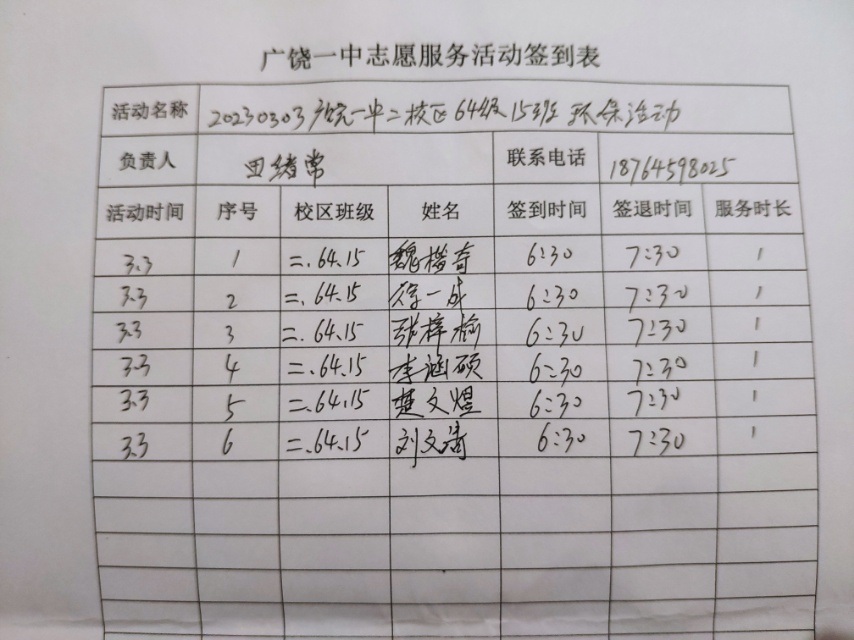 广饶一中志愿服务活动签到表
活动名称 20230303广饶一中二校区64级15班环保活动
负责人 田绪常 联系电话 18764598025
活动时间 序号 校区班级 姓名 签到时间 签退时间 服务时长
3.3 1 二.64.15 魏楷奇 6:30 7:30 1
3.3 2 二.64.15 徐一成 6:30 7:30 1
3.3 3 二.64.15 张梓榆 6:30 7:30 1
3.3 4 二.64.15 李涵硕 6:30 7:30 1
3.3 5 二.64.15 楚文煜 6:30 7:30 1
3.3 6 二.64.15 刘文涛 6:30 7:30 1